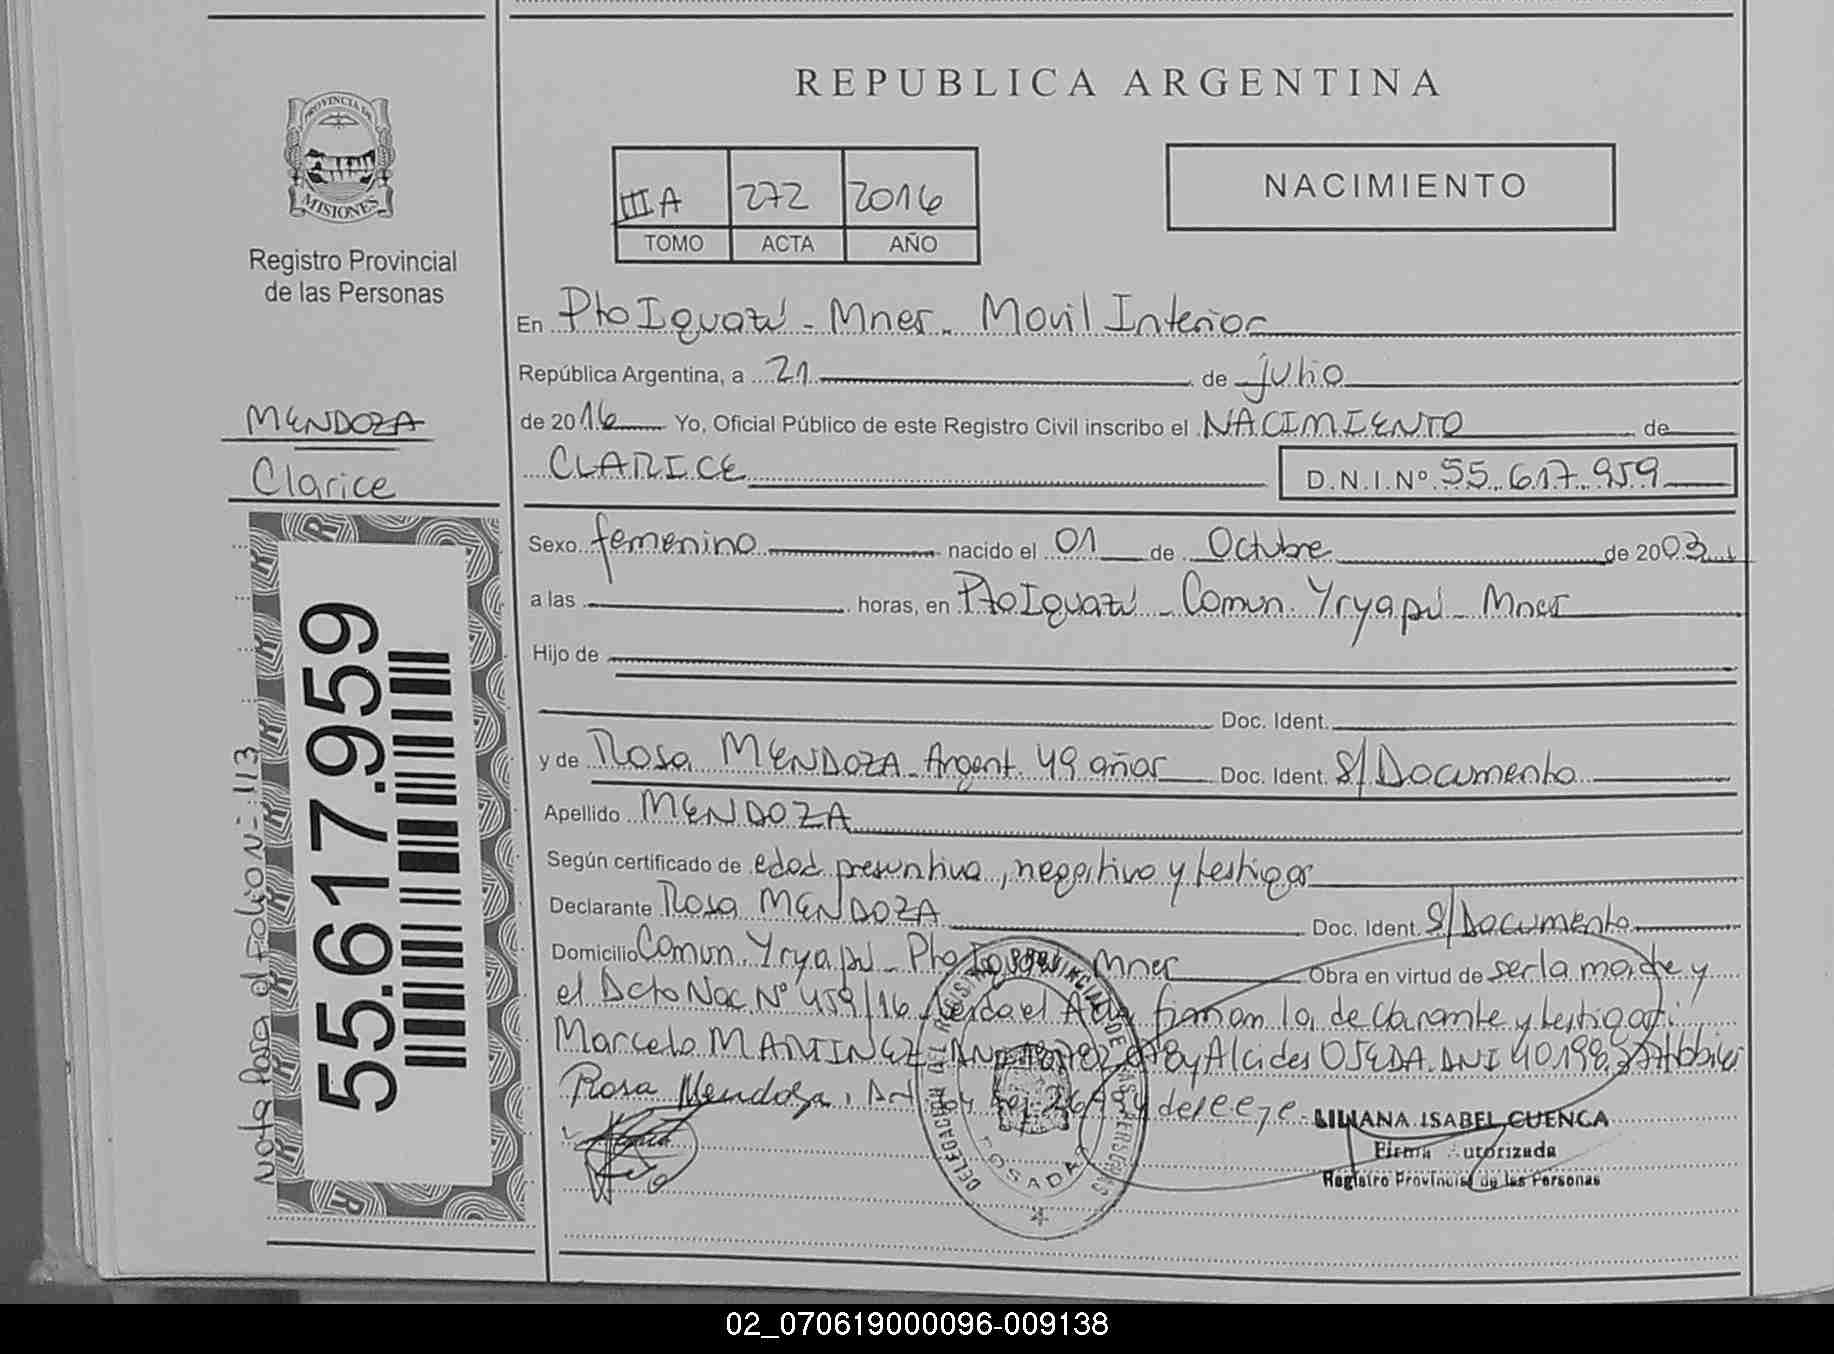 REPUBLICA ARGENTINA
PROVINCIA DE
MISIONES
Registro Provincial
de las Personas
III A 272 2016
TOMO ACTA AÑO
NACIMIENTO
En Pto Iguazú - Mnes. Movil Interior
República Argentina, a 21 de julio
de 2016 Yo, Oficial Público de este Registro Civil inscribo el NACIMIENTO de
CLARICE D.N.I.Nº 55.617.959
MENDOZA
Clarice
Sexo femenino nacido el 01 de Octubre de 2003
a las horas, en Pto Iguazú - Comun. Yryapú - Mnes
Hijo de
Doc. Ident.
y de Rosa MENDOZA - Argent. 49 años Doc. Ident. S/ Documento
Apellido MENDOZA
Según certificado de edad presuntiva, negativo y testigos
Declarante Rosa MENDOZA Doc. Ident. S/ Documento
Domicilio Comun. Yryapú - Pto Iguazú Mnes Obra en virtud de ser la madre y
el Dcto Nac. Nº 459/16 Leida el Acta firman la declarante y testigos:
Marcelo MARTINEZ y Alcides OJEDA. DNI
Rosa Mendoza,
LILIANA ISABEL CUENCA
Firma Autorizada
Registro Provincial de las Personas
DELEGACION DEL REGISTRO PROVINCIAL DE LAS PERSONAS
POSADAS
55.617.959
Nota Pasa al Folio N= 113
02_070619000096-009138